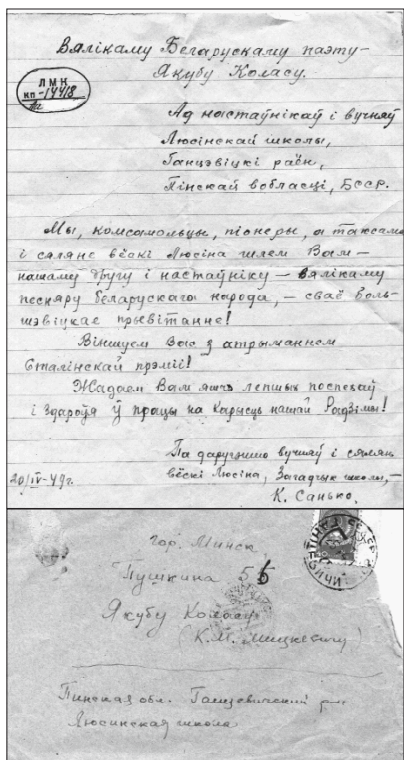 Вялікаму Беларускаму паэту –
Якубу Коласу.
ЛМК
кп - 14418
Ад настаўнікаў і вучняў
Люсінскай школы,
Ганцэвіцкі раён,
Пінскай вобласці, БССР.
Мы, комсамольцы, піонеры, а таксама
і сяляне вёскі Люсіна шлем Вам –
нашаму другу і настаўніку – вялікаму
песняру беларускага народа, – сваё боль-
шэвіцкае прывітанне!
Віншуем Вас з атрыманнем
Сталінскай прэміі!
Жадаем Вам яшчэ лепшых поспехаў
і здароўя ў працы на карысць нашай Радзімы!
Па даручэнню вучняў і сялян
вёскі Люсіна, Загадчык школы, –
20/IV-49г.
К. Санько.
гор. Минск
Пушкина
Якубу Коласу
(К.М. Мицкевичу)
Пинская обл. Ганцевичский
Люсинская школа